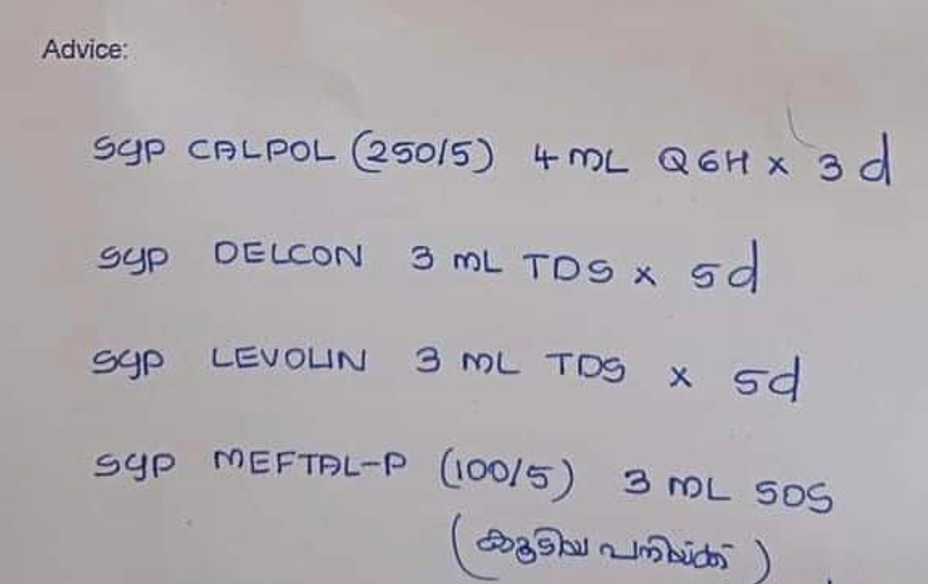 Advice:
syp CALPOL (250/5) 4 mL Q6H x 3 d
syp DELCON 3 mL TDS x 5d
syp LEVOLIN 3 mL TDS x 5d
syp MEFTAL-P (100/5) 3 mL SOS
(കൂടിയ പനിയ്ക്ക്)